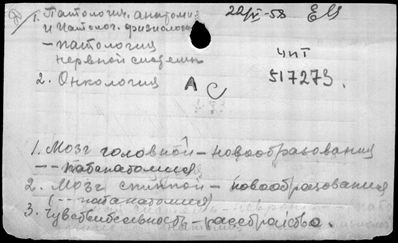 1. Патология. анатомия 22/IV-58
и патолог. физиология
- патология чит
нервной системы 517273.
2. Онкология А С
1. Мозг головной - новообразования
- - патанатомия
2. Мозг спинной - новообразования
- - патанатомия
3. Чувствительность - расстройство.